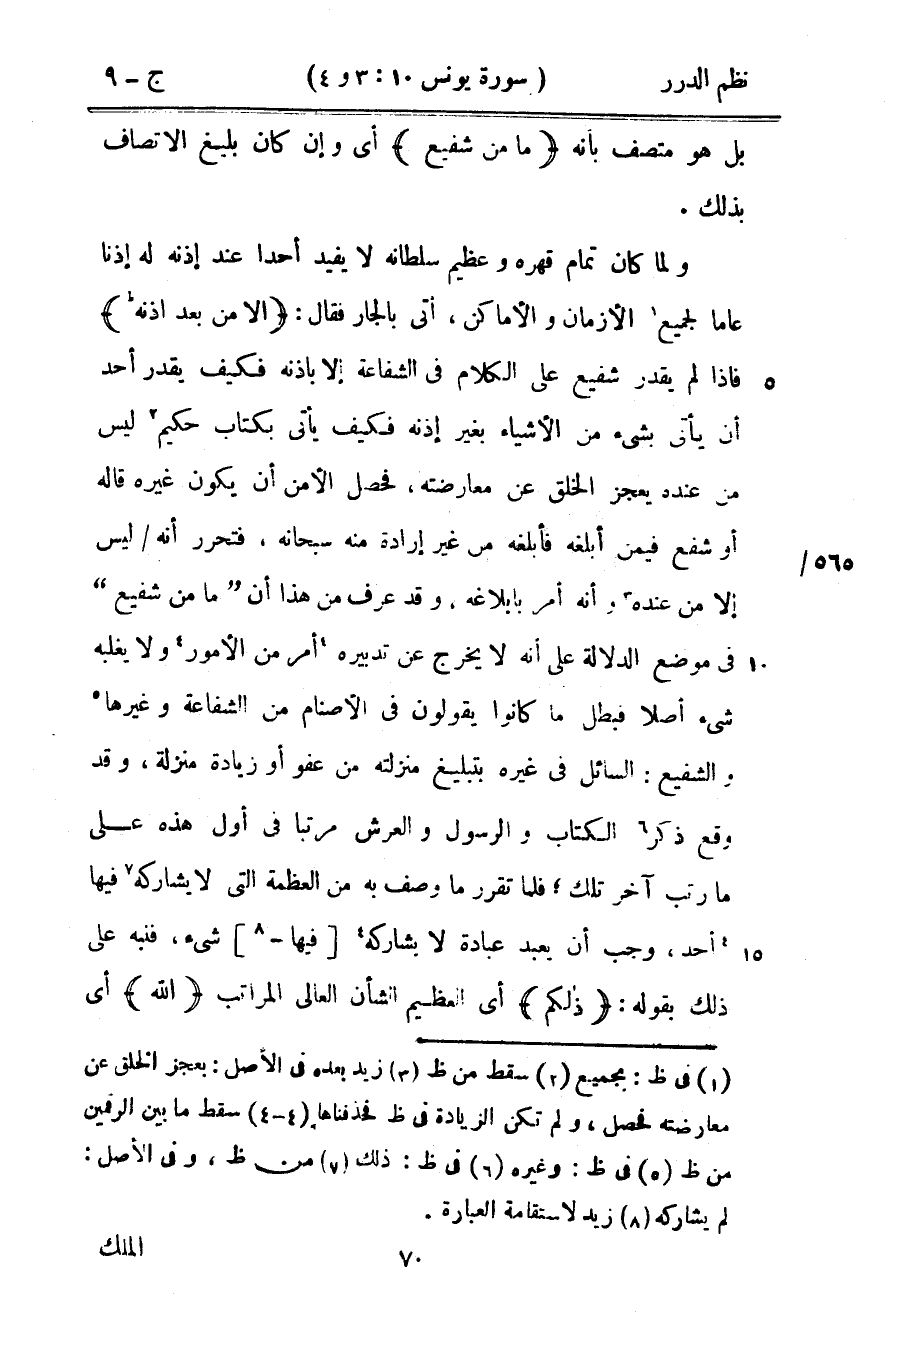 نظم الدرر ( سورة يونس ١٠ : ٣ و ٤ ) ج - ٩
بل هو متصف بأنه ﴿ ما من شفيع ﴾ أى و إن كان بليغ الاتصاف
بذلك .
و لما كان تمام قهره و عظيم سلطانه لا يفيد أحدا عند إذنه له إذنا
عاما لجميع١ الأزمان و الأماكن ، أتى بالجار فقال : ﴿ الا من بعد اذنه ﴾
٥ فاذا لم يقدر شفيع على الكلام فى الشفاعة إلا باذنه فكيف يقدر أحد
أن يأتى بشىء من الأشياء بغير إذنه فكيف يأتى بكتاب حكيم٢ ليس
من عنده يعجز الخلق عن معارضته ، فحصل الأمن أن يكون غيره قاله
أو شفع فيمن أبلغه فأبلغه من غير إرادة منه سبحانه ، فتحرر أنه / ليس /٥٦٥
إلا من عنده٣ و أنه أمر بابلاغه ، و قد عرف من هذا أن ” ما من شفيع “
١٠ فى موضع الدلالة على أنه لا يخرج عن تدبيره ٤أمر من الأمور٤ و لا يغلبه
شىء أصلا فبطل ما كانوا يقولون فى الأصنام من الشفاعة و غيرها٥
و الشفيع : السائل فى غيره بتبليغ منزلته من عفو أو زيادة منزلة ، و قد
وقع ذكر٦ الكتاب و الرسول و العرش مرتبا فى أول هذه عـلى
ما رتب آخر تلك ؛ فلما تقرر ما وصف به من العظمة التى لا يشاركه٧ فيها
١٥ ٤أحد ، وجب أن يعبد عبادة لا يشاركه٤ [ فيها - ٨ ] شىء ، فنبه على
ذلك بقوله : ﴿ ذٰلكم ﴾ أى العظيم الشأن العالى المراتب ﴿ الله ﴾ أى
(١) فى ظ : بجميع (٢) سقط من ظ (٣) زيد بعده فى الأصل : بعجز الخلق عن
معارضته فحصل ، و لم تكن الزيادة فى ظ فحذفناها (٤-٤) سقط ما بين الرقمين
من ظ (٥) فى ظ : وغيره (٦) فى ظ : ذلك (٧) من ظ ، و فى الأصل :
لم يشاركه (٨) زيد لاستقامة العبارة .
٧٠ الملك